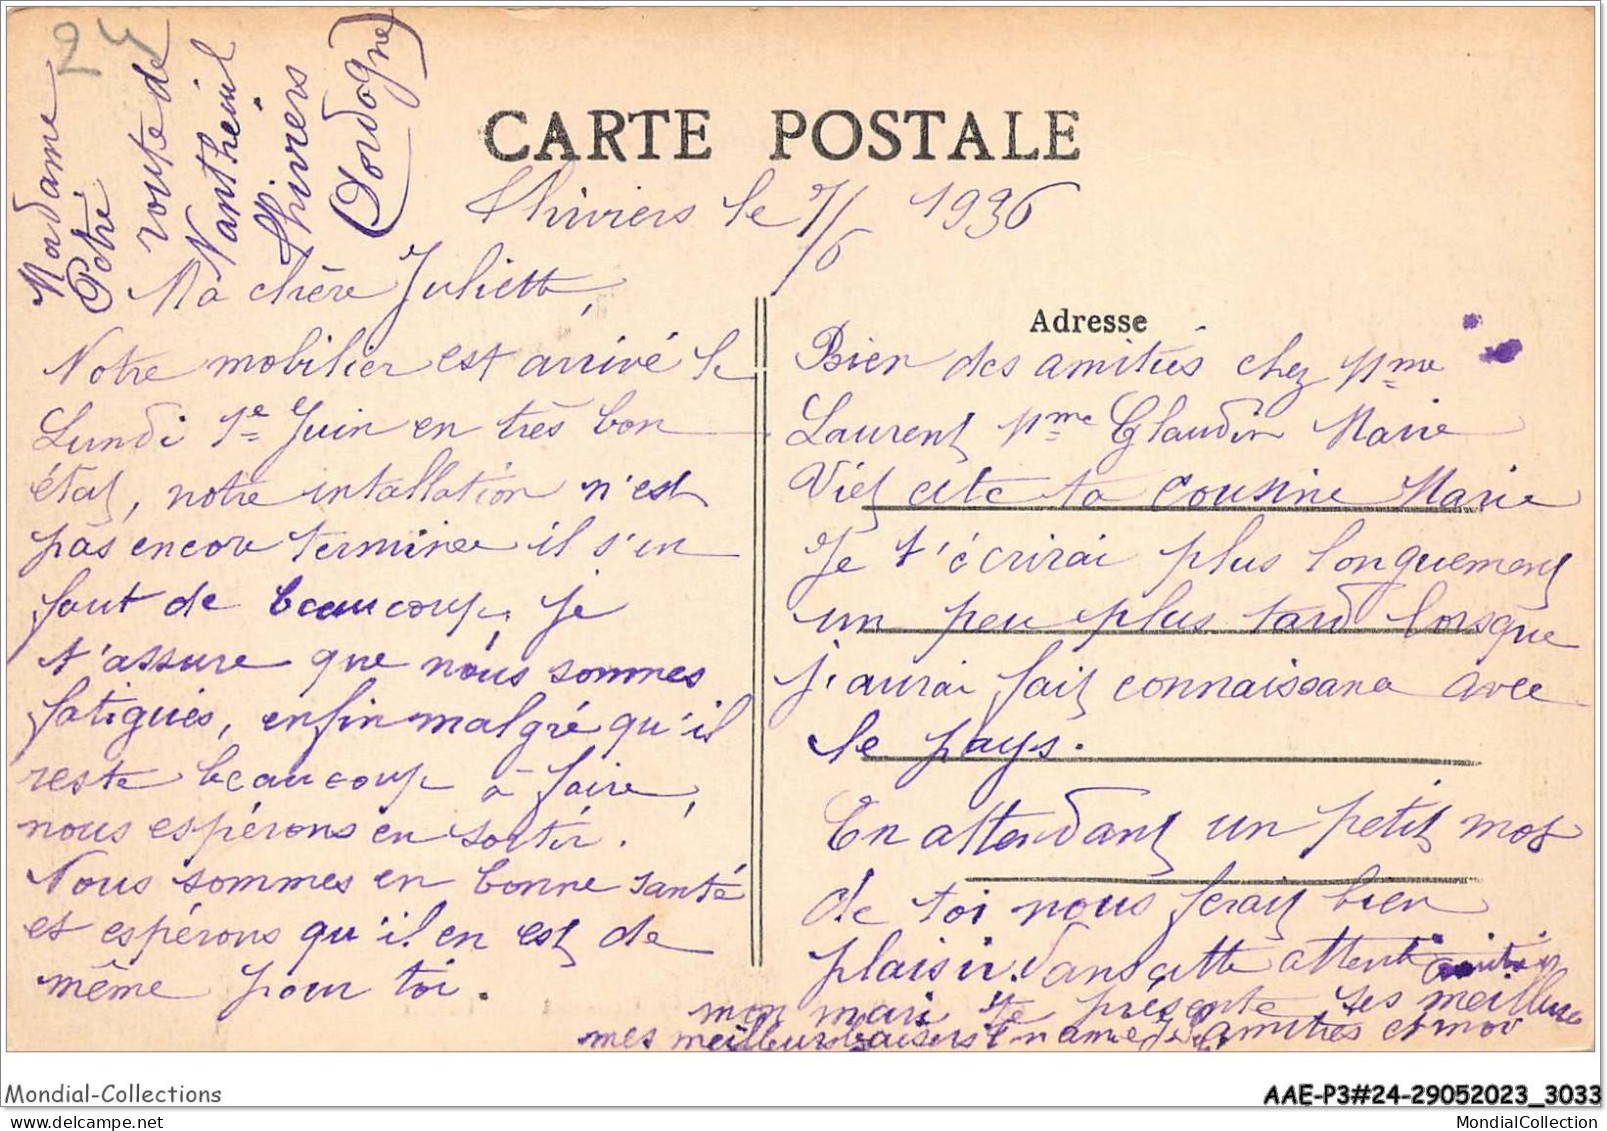 24
Madame
Pétré
route de
Nantheuil
Thiviers
(Dordogne)
CARTE POSTALE
Thiviers le 7/6 1936
Ma chère Juliette,
Notre mobilier est arrivé le
Lundi 1e Juin en très bon
état, notre intallation n'est
pas encore terminée il s'en
faut de beaucoup, je
t'assure que nous sommes
fatigués, enfin malgré qu'il
reste beaucoup à faire,
nous espérons en sortir.
Nous sommes en bonne santé
et espérons qu'il en est de
même pour toi.
Adresse
Bien des amitiés chez Mme
Laurent Mme Glaudin Marie
Viet etc ta cousine Marie
Je t'écrirai plus longuement
un peu plus tard lorsque
j'aurai fait connaissance avec
le pays.
En attendant un petit mot
de toi nous ferait bien
plaisir. dans cette attente
mon mari te présente ses meilleures
amitiés et moi
mes meilleurs baisers
Mondial-Collections
AAE-P3#24-29052023_3033
MondialCollection